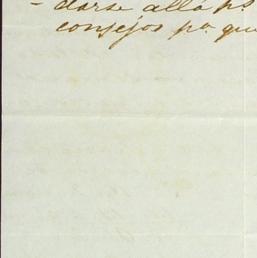 - darse allá ps.
consejos pa. que